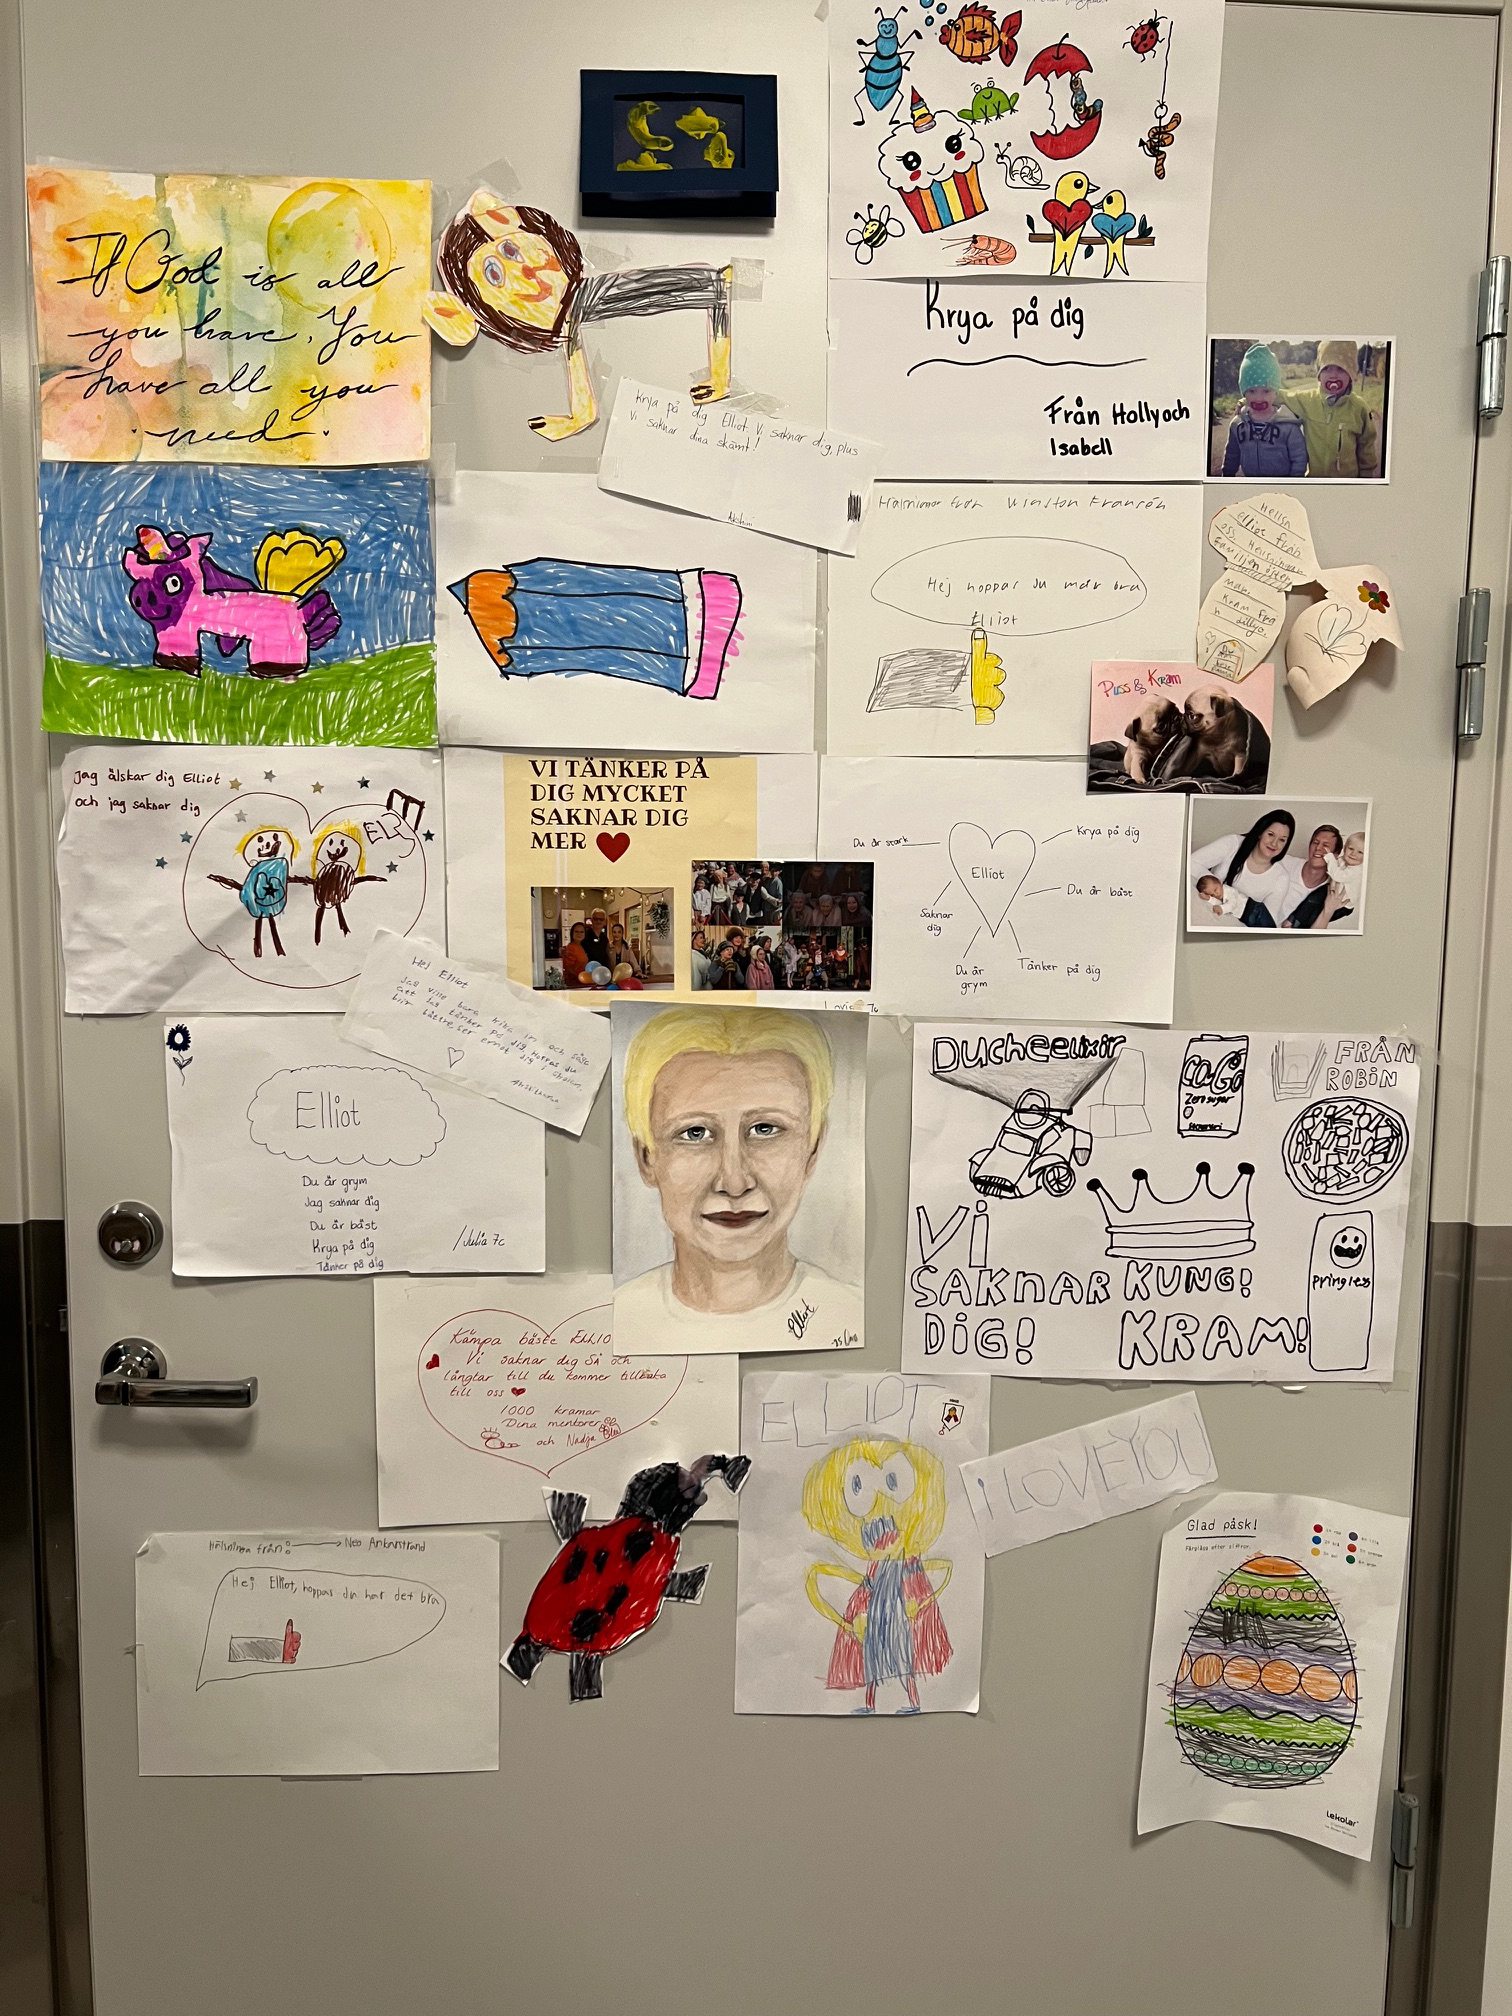 If God is all
you have, You
have all you
need.
Krya på dig
Från Holly och
Isabell
Krya på dig Elliot Vi saknar dig, plus
Vi saknar dina skämt!
Hälsningar från Winston Fransén
Hej hoppas du mår bra
Elliot
Hellsn
Elliot från
oss.
Familjen
Kram från
GAP
Puss & Kram
Jag älskar dig Elliot
och jag saknar dig
VI TÄNKER PÅ
DIG MYCKET
SAKNAR DIG
MER
Du är stark
Krya på dig
Elliot
Du är bäst
Saknar
dig
Du är
grym
Tänker på dig
Hej Elliot
Jag ville bara titta in och säga
att jag tänker på dig. Hoppas du
blir bättre,
Elliot
Du är grym
Jag saknar dig
Du är bäst
Krya på dig
Tänker på dig
/Julia 7c
Elliot
DUCHEELIXIR
Zero sugar
FRÅN
ROBIN
VI
SAKNAR
DIG!
KUNG!
KRAM!
pringles
Kämpa bäste ELLIO
Vi saknar dig SÅ och
längtar till du kommer tillbaka
till oss
1000 kramar
Dina mentorer
och Nadja
ELLIOT
I LOVE YOU
Hälsninga från: Neo Ankarstrand
Hej Elliot, hoppas du har det bra
Glad påsk!
Färglägg efter siffror.
lekolar